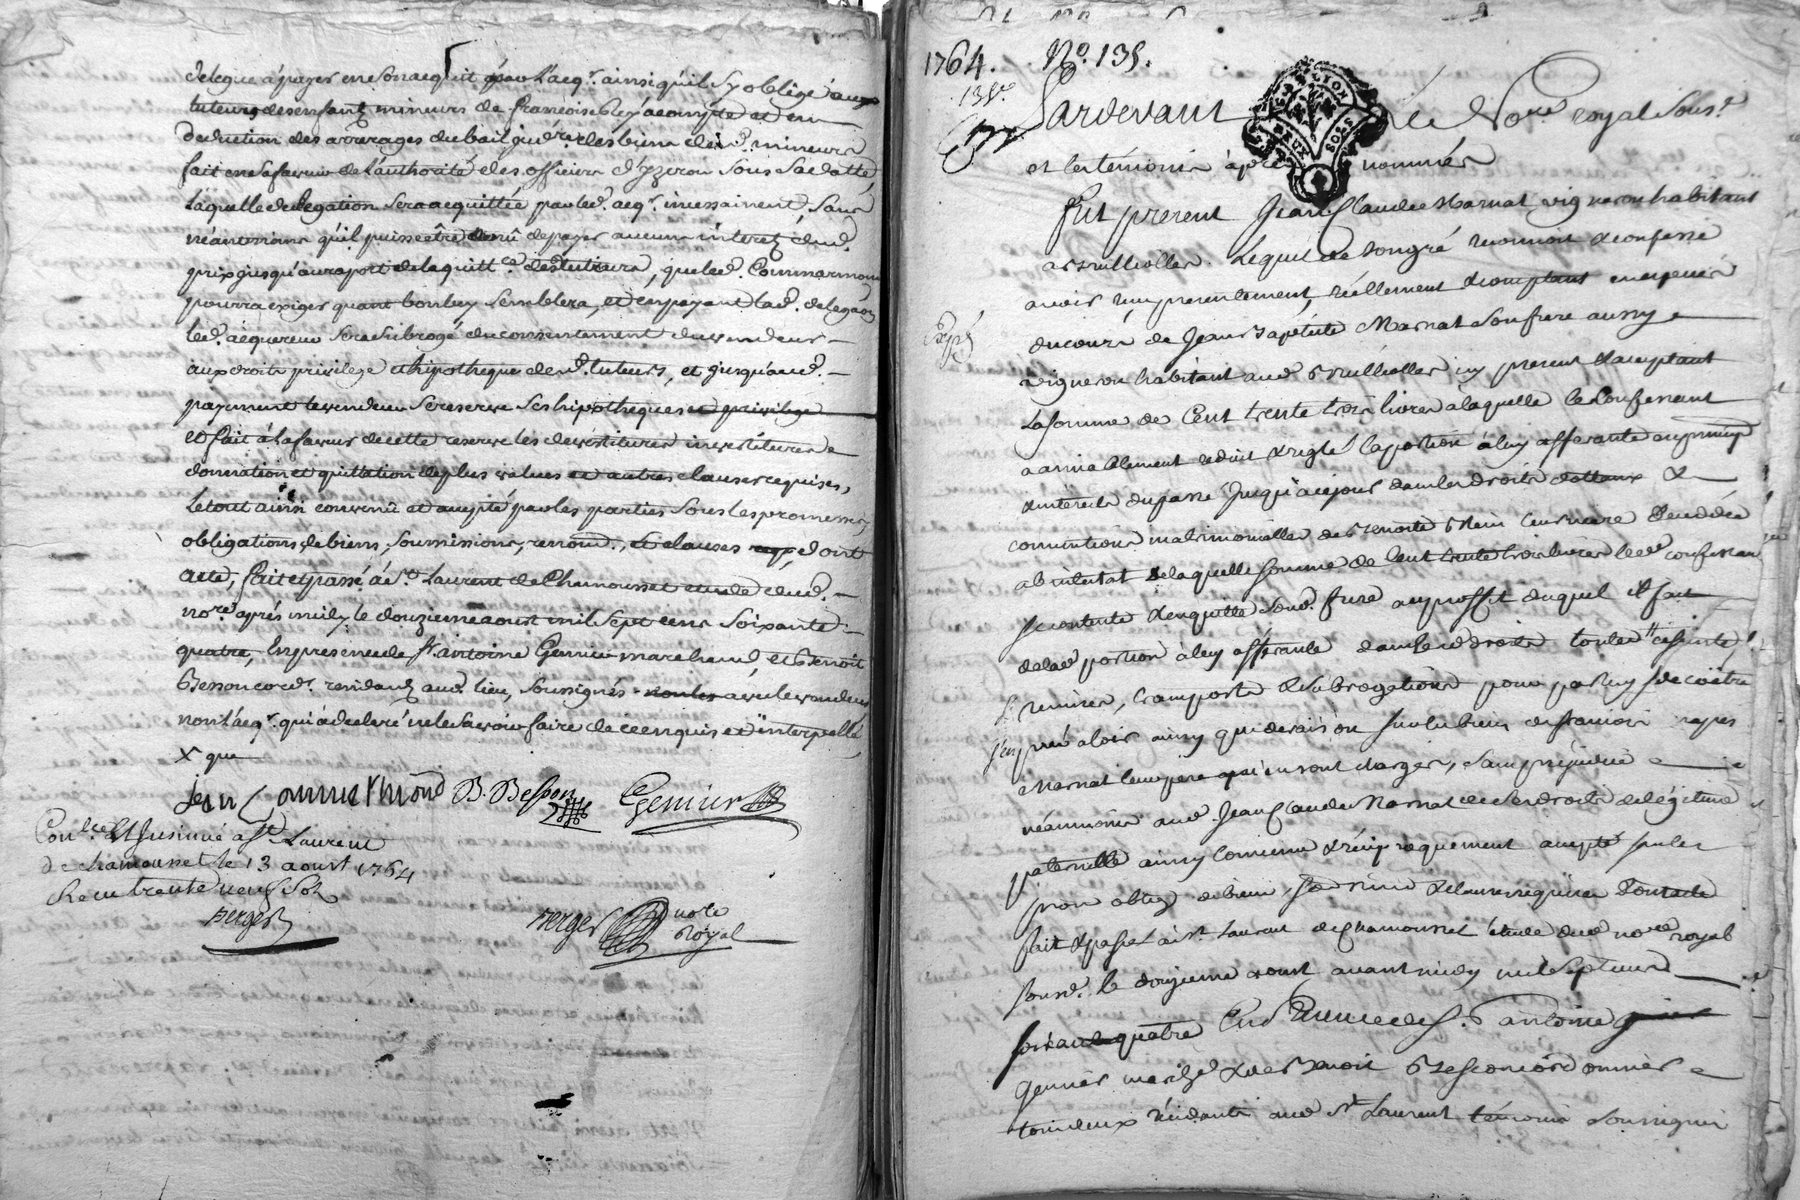 delegue a payer en son acquit par l'acqr. ainsi qu'il s'y oblige aux
tuteurs des enfants mineurs de francoise Rey acompte et en
deduction des arrerages du bail judre. des biens desd. mineurs
fait en sa faveur de l'authorité des officiers d'yzeron sous sa datte,
laquelle delegation sera acquittée par led. acqr. incessament, sans
néantmoins qu'il puisse être tenu de payer aucuns interetz dud.
prix jusqu'au raport de la quittce. des tuteurs, que led. Commarmond
pourra exiger quant bon luy semblera, et en payant lad. delegaon
led. acquereur sera subrogé du consentement du vendeur
aux droits privilege et hipotheque desd. tuteurs, et jusqu'aud.
payement le vendeur se reserve ses hipotheques et privilege
et fait à la faveur de cette reserve les devestitures investitures
donnation et quittation de plus values et autres clauses requises,
le tout ainsi convenû et accepté par les parties sous les promesses,
obligations de biens, soumissions, renond., et clauses dont
acte, fait et passé à St. Laurent de Chamousset etude dud.
nore. après midy le douzieme aoust mil sept cens soixante
quatre, en presence de sr. antoine Genier marchand, et Benoit
Besson cordr. residants aud. lieu, soussignés avec le vendeur
non l'acqr. qui a declaré ne le savoir faire de ce enquis et interpellé
X que
jean Commarmond B. Besson Genier
Conlée et Insinué a St. Laurent
de chamousset le 13 aoust 1764
Recu trente neuf sols
Berger
Berger nore
Royal
1764. No. 135.
135e
Pardevant le Nore royal sousé.
et les témoins après nommés
fut present Jean Claude Marnat vigneron habitant
a Brullioles. Lequel de son gré reconnoit & confesse
avoir reçu presentement, réellement & comptant en especes
Expé
du cours de Jean Baptiste Marnat son frere aussy
vigneron habitant aud Brullioles icy present & acceptant
la somme de cent trente trois livres a laquelle le confessant
a amiablement reduit & reglé la portion à luy afferante au principal
& interets du passé jusqu'a ce jour dans les droits dottaux &
conventions matrimonielles de Benoite leur mere decedée
abintestat de laquelle somme de cent trente trois livres led confessant
se contente & en quitte sond. frere au proffit duquel il fait
de lad portion à luy afferante dans lesd droits toutes cessions,
remises, transports & subrogations pour par luy
néanmoins aud. Jean Claude Marnat de ses droits de légitime
paternelle ainsy convenu & réciproquement accepté sous les
prom obligs de biens, & clauses requises Dont acte
fait & passé à St. Laurent de Chamousset étude dud nore royal
sousé. le douzieme aoust avant midy mil sept cens
soixante quatre En presence de sr. antoine
genier marchd & de Benoit Besson cordonnier
tous deux résidants aud St. Laurent témoins soussignés